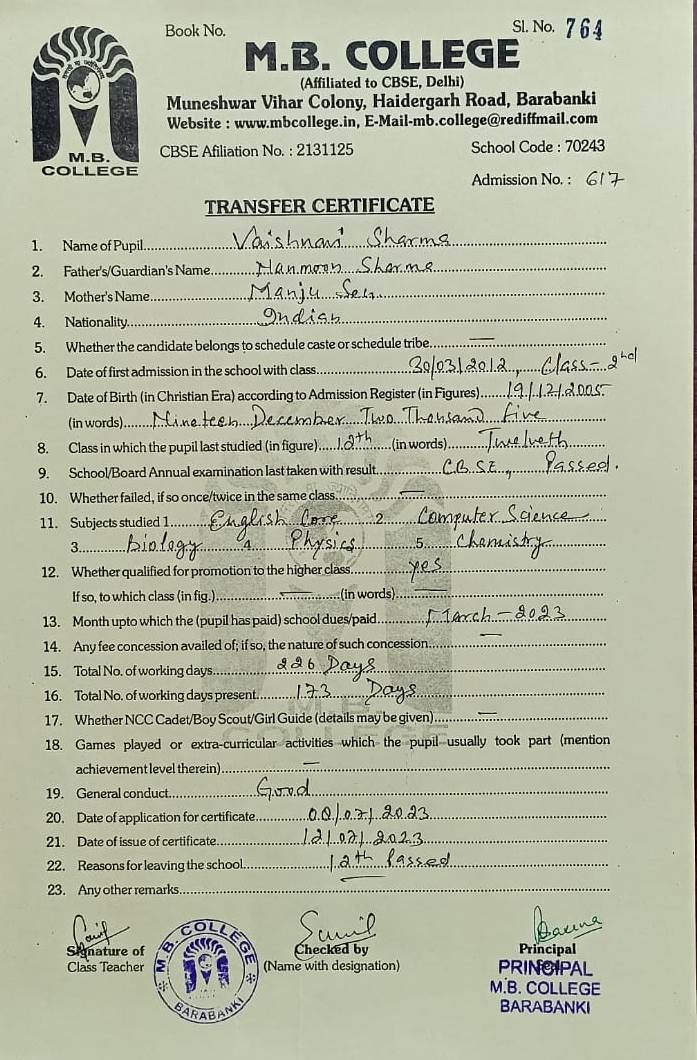 Book No.
Sl. No. 764
M.B. COLLEGE
(Affiliated to CBSE, Delhi)
Muneshwar Vihar Colony, Haidergarh Road, Barabanki
Website : www.mbcollege.in, E-Mail-mb.college@rediffmail.com
M.B.
COLLEGE
CBSE Afiliation No. : 2131125
School Code : 70243
Admission No. : 617
TRANSFER CERTIFICATE
1. Name of Pupil Vaishnavi Sharma
2. Father's/Guardian's Name Manmoon Sharma
3. Mother's Name Manju Sen
4. Nationality Indian
5. Whether the candidate belongs to schedule caste or schedule tribe —
6. Date of first admission in the school with class 30/03/2012, Class - 2nd
7. Date of Birth (in Christian Era) according to Admission Register (in Figures) 19/12/2005
(in words) Nineteen December Two Thousand five
8. Class in which the pupil last studied (in figure) 12th (in words) Twelveth
9. School/Board Annual examination last taken with result CBSE, Passed.
10. Whether failed, if so once/twice in the same class —
11. Subjects studied 1 English Core 2 Computer Science
3 Biology 4 Physics 5 Chemistry
12. Whether qualified for promotion to the higher class yes
If so, to which class (in fig.) — (in words) —
13. Month upto which the (pupil has paid) school dues/paid March - 2023
14. Any fee concession availed of; if so, the nature of such concession —
15. Total No. of working days 226 Days
16. Total No. of working days present 173 Days
17. Whether NCC Cadet/Boy Scout/Girl Guide (details may be given) —
18. Games played or extra-curricular activities which the pupil usually took part (mention
achievement level therein) —
19. General conduct Good
20. Date of application for certificate 08/07/2023
21. Date of issue of certificate 12/07/2023
22. Reasons for leaving the school 12th Passed
23. Any other remarks —
Signature of
Class Teacher
M.B. COLLEGE
BARABANKI
Sunil
Checked by
(Name with designation)
Principal
PRINCIPAL
M.B. COLLEGE
BARABANKI